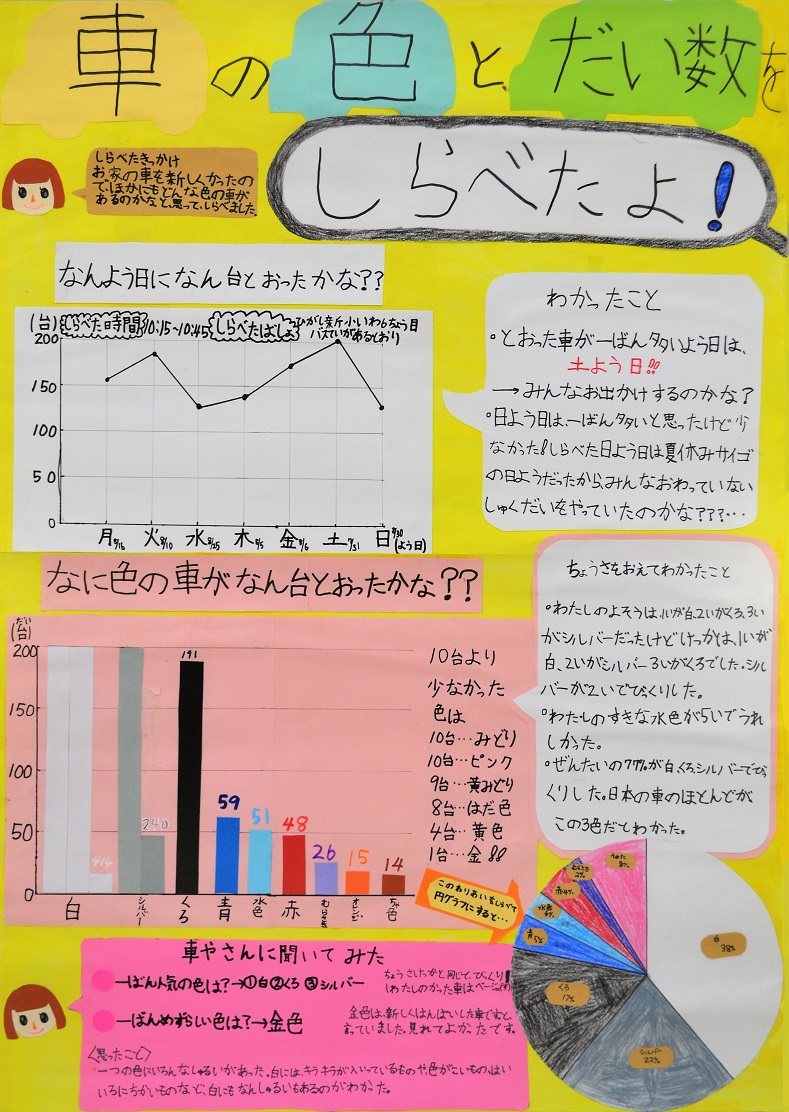 車の色とだい数を
しらべたよ!
しらべたきっかけ
お家の車を新しくかったの
で、ほかにもどんな色の車が
あるのかなと思って、しらべました。
なんよう日になん台とおったかな??
(台)
しらべた時間
10:15~10:45
しらべたばしょ
ひがし新小いわ6ちょう目
バスていがあるとおり
200
150
100
50
0
月
火8/10
水8/25
木8/5
金8/6
土7/31
日
(よう日)
わかったこと
・とおった車が一ばん多いよう日は、
土よう日!!
→みんなお出かけするのかな?
・日よう日は、一ばん多いと思ったけど少
なかった!しらべた日よう日は夏休みサイゴ
の日ようだったから、みんなおわっていない
しゅくだいをやっていたのかな???…
なに色の車がなん台とおったかな??
だい
(台)
200
150
100
50
0
414
240
191
59
51
48
26
15
14
白
シルバー
くろ
青
水色
赤
むらさき
オレンジ
ちゃ色
10台より
少なかった
色は
10台…みどり
10台…ピンク
9台…黄みどり
8台…はだ色
4台…黄色
1台…金!!
ちょうさをおえてわかったこと
・わたしのよそうは、1いが白、2いがくろ、3い
がシルバーだったけどけっかは、1いが
白、2いがシルバー3いがくろでした。シル
バーが2いでびっくりした。
・わたしのすきな水色が5いでうれ
しかった。
・ぜんたいの77%が白くろシルバーでびっ
くりした。日本の車のほとんどが
この3色だとわかった。
このわりあいをしらべて
円グラフにすると…
白
38%
シルバー
22%
くろ
17%
青5%
水色
赤4%
むらさき
2%
その他
8%
車やさんに聞いてみた
一ばん人気の色は?→①白②くろ③シルバー
一ばんめずらしい色は?→金色
金色は、新しくはんばいした車ですと、
言っていました。見れてよかったです。
<思ったこと>
一つの色にいろんなしゅるいがあった。白には、キラキラが入っているものや、色がこいもの、はい
いろにちかいものなど、白にもなんしゅるいもあるのがわかった。